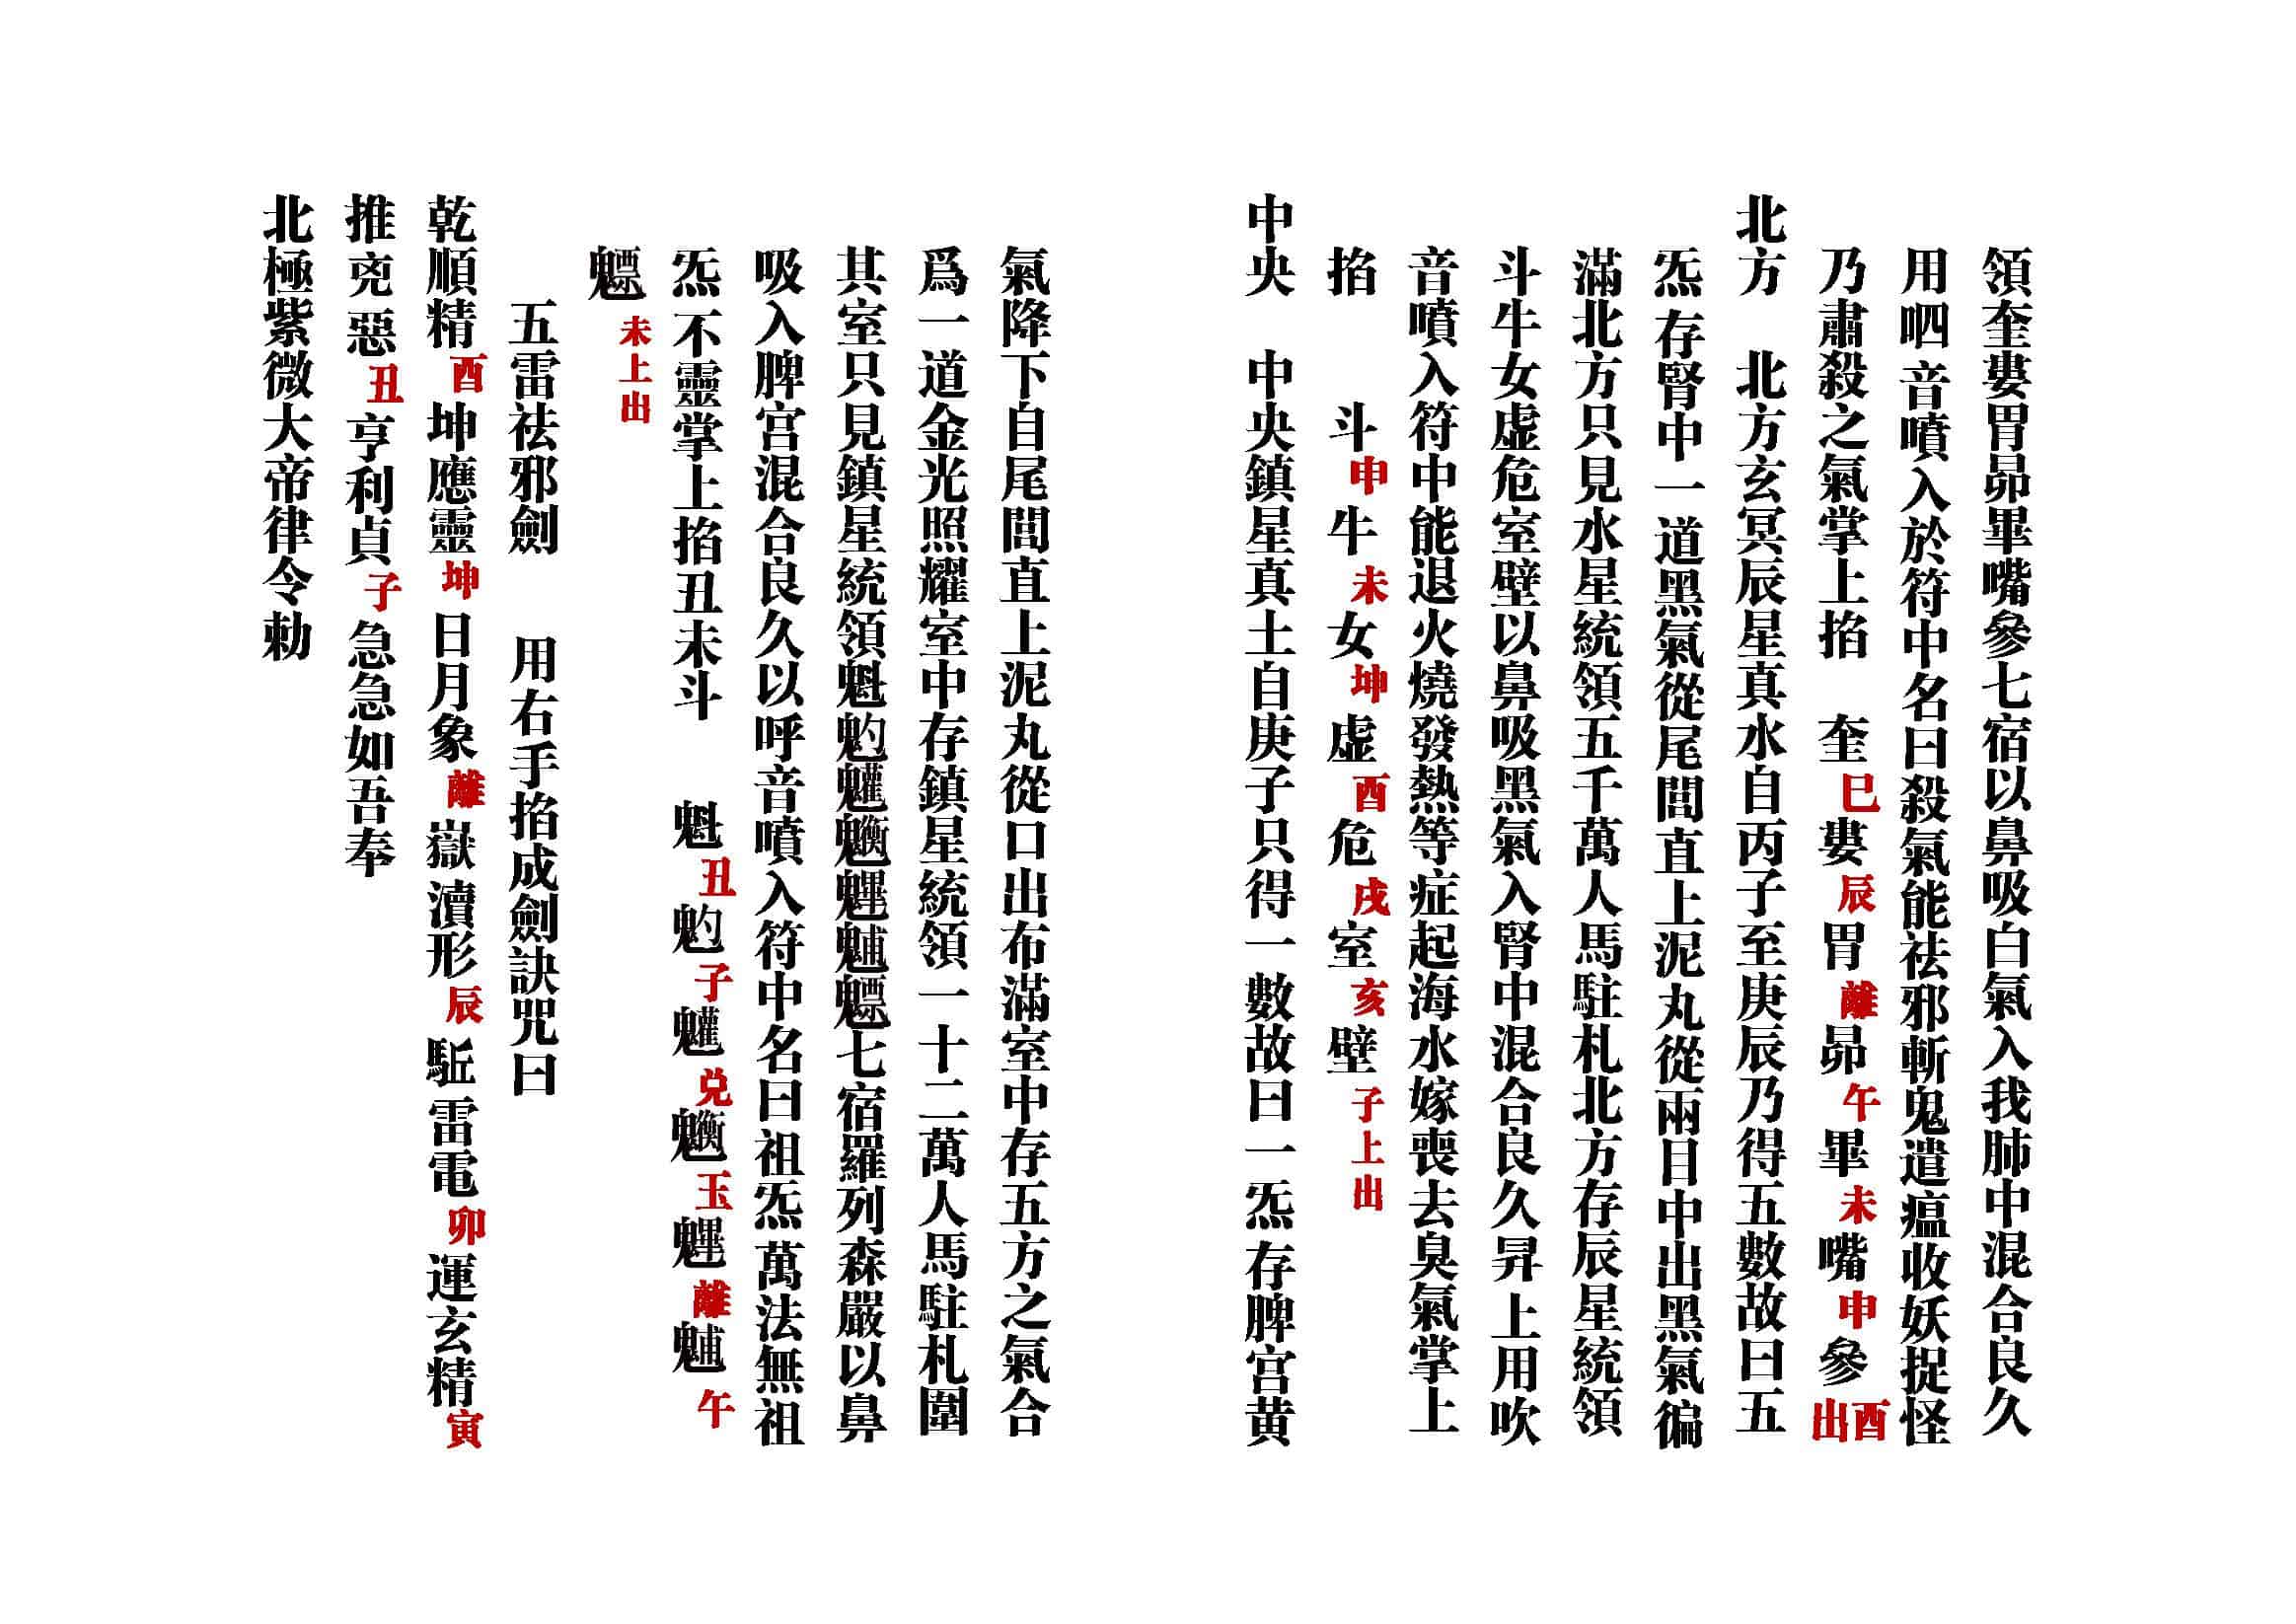 領奎婁胃昴畢嘴參七宿以鼻吸白氣入我肺中混合良久
用呬音噴入於符中名曰殺氣能祛邪斬鬼遣瘟收妖捉怪
乃肅殺之氣掌上掐　奎巳婁辰胃離昴午畢未嘴申參酉出
北方　北方玄冥辰星真水自丙子至庚辰乃得五數故曰五
炁存腎中一道黑氣從尾閭直上泥丸從兩目中出黑氣徧
滿北方只見水星統領五千萬人馬駐札北方存辰星統領
斗牛女虛危室壁以鼻吸黑氣入腎中混合良久昇上用吹
音噴入符中能退火燒發熱等症起海水嫁喪去臭氣掌上
掐　　斗申牛未女坤虛酉危戌室亥壁子上出
中央　中央鎮星真土自庚子只得一數故曰一炁存脾宮黄
氣降下自尾閭直上泥丸從口出布滿室中存五方之氣合
爲一道金光照耀室中存鎮星統領一十二萬人馬駐札圍
其室只見鎮星統領魁䰢魓七宿羅列森嚴以鼻
吸入脾宮混合良久以呼音噴入符中名曰祖炁萬法無祖
炁不靈掌上掐丑未斗　魁丑子兑玉離午
魒未上出
五雷祛邪劍　用右手掐成劍訣咒曰
乾順精酉坤應靈坤日月象離嶽瀆形辰雷電卯運玄精寅
推兇惡丑亨利貞子急急如吾奉
北極紫微大帝律令勅